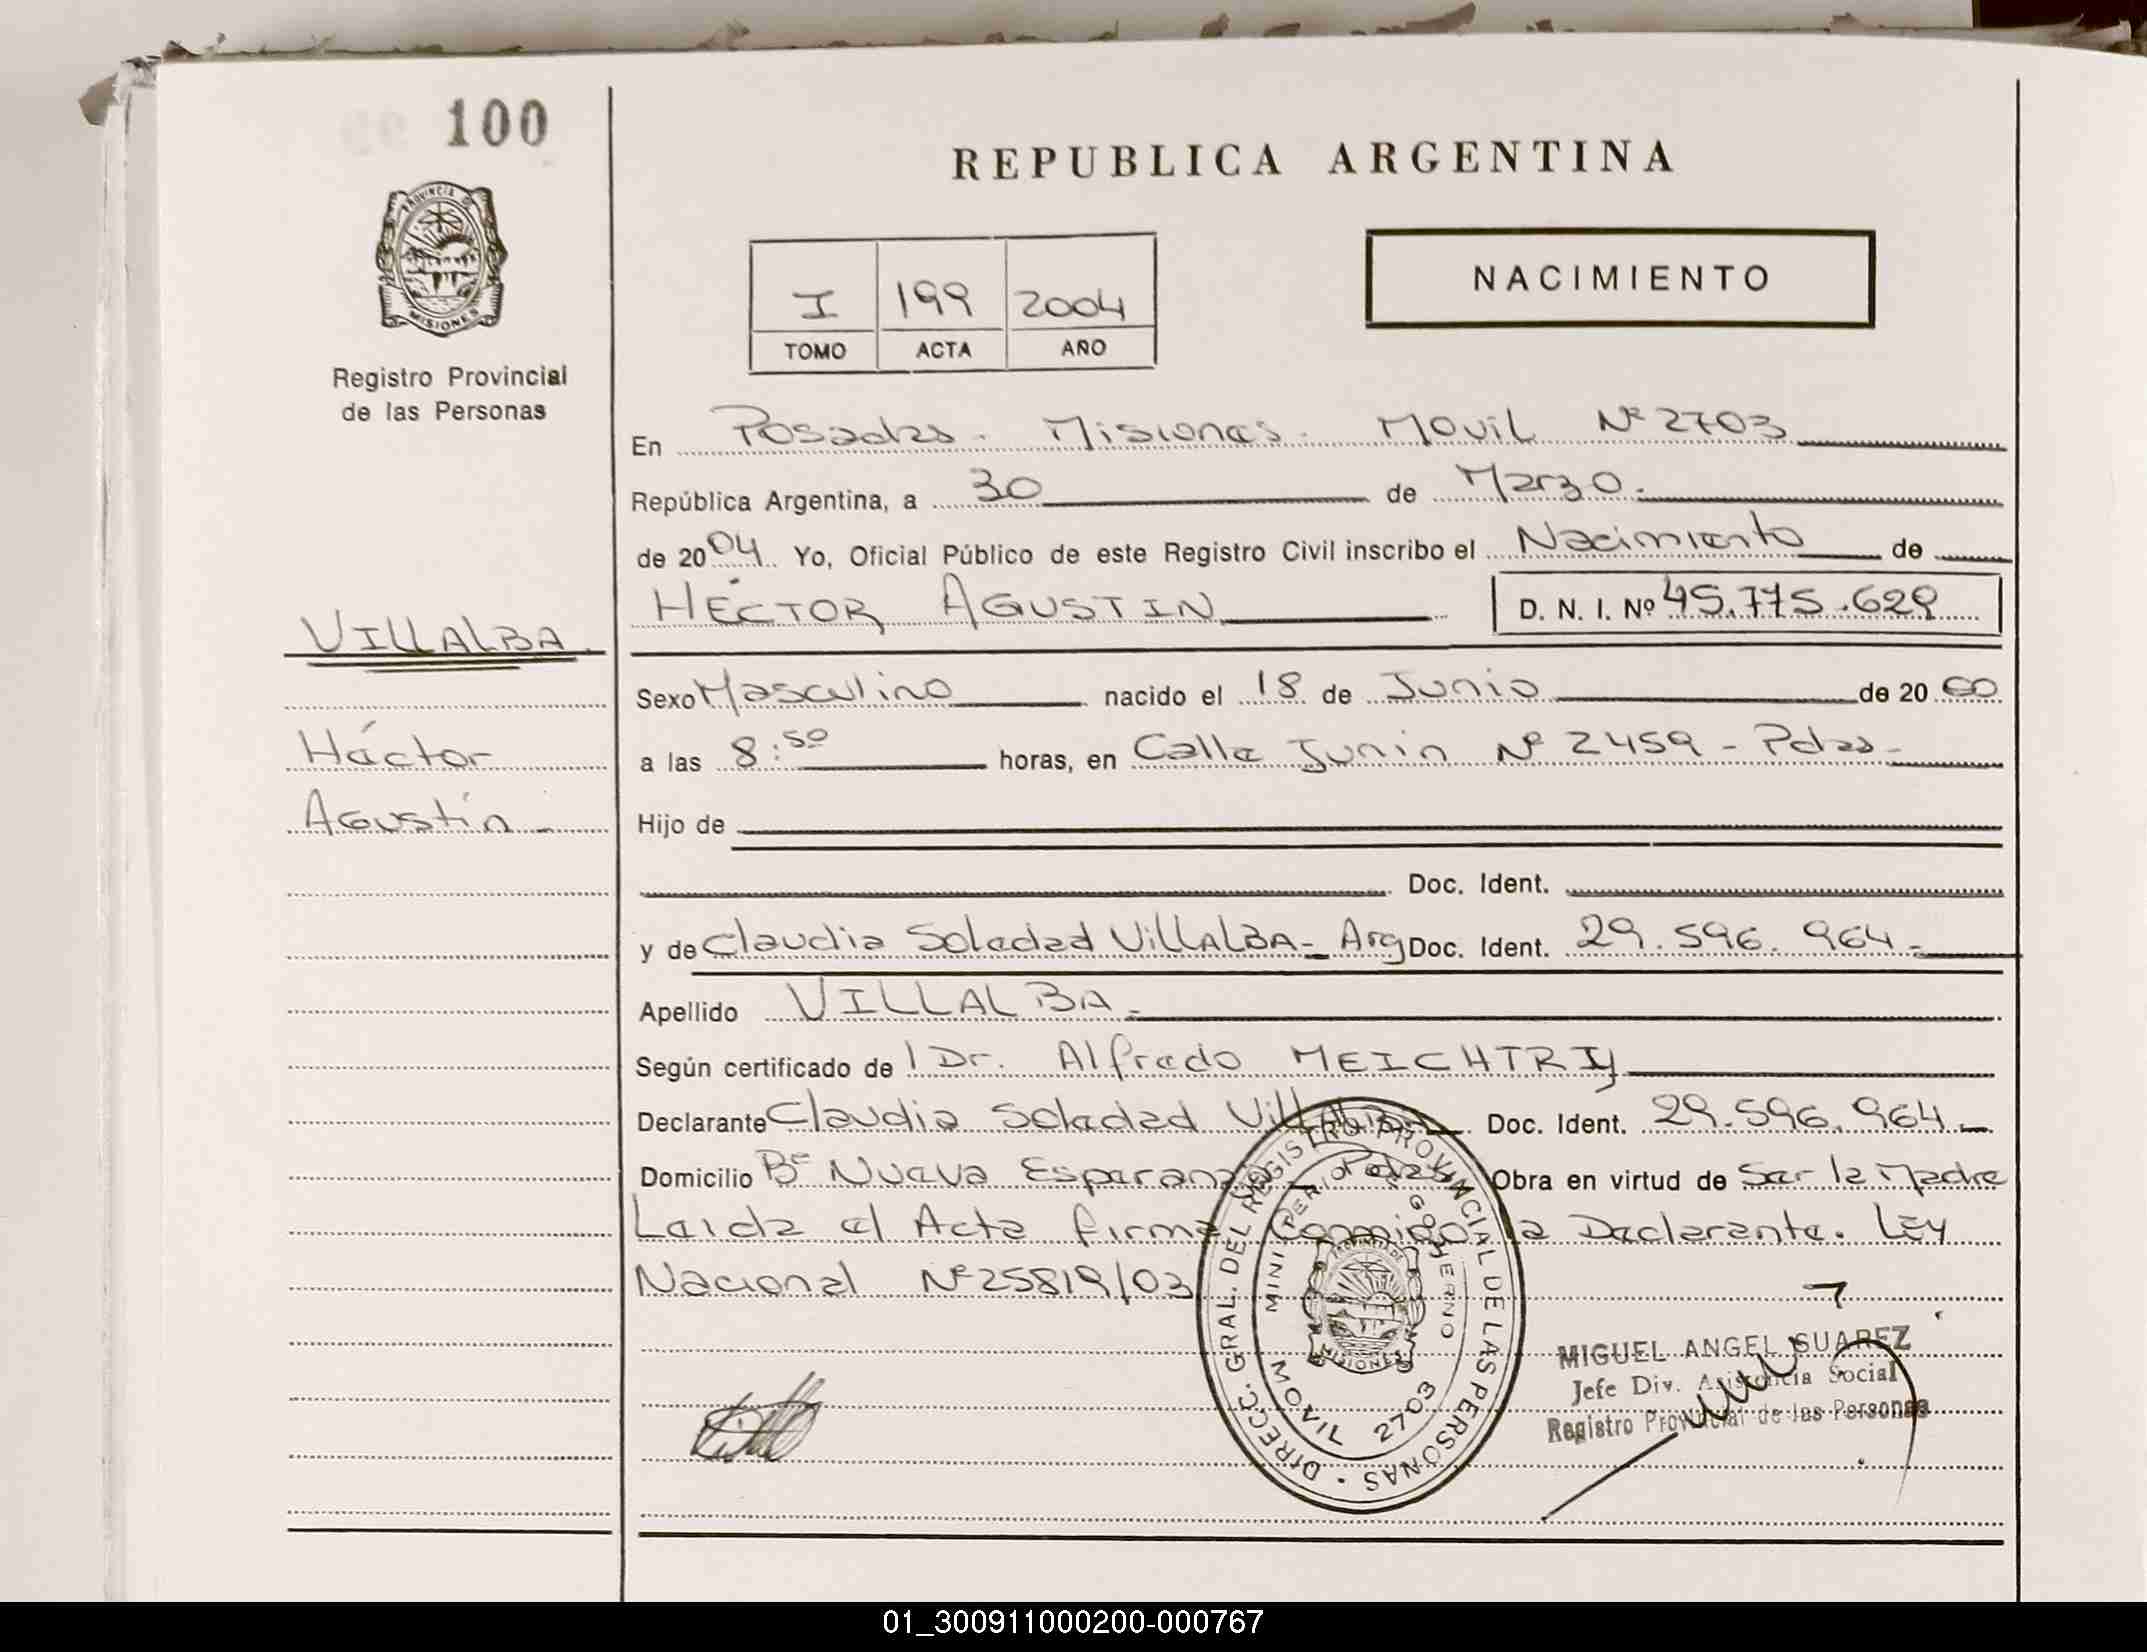 100
PROVINCIA DE
MISIONES
Registro Provincial
de las Personas
REPUBLICA ARGENTINA
NACIMIENTO
I 199 2004
TOMO ACTA AÑO
En Posadas. Misiones. Movil Nº 2703
República Argentina, a 30 de Marzo.
de 2004 Yo, Oficial Público de este Registro Civil inscribo el Nacimiento de
HÉCTOR AGUSTIN D. N. I. Nº 45.775.629
VILLALBA
Héctor
Agustín -
Sexo Masculino nacido el 18 de Junio de 20 00
a las 8:50 horas, en Calle Junin Nº 2459 - Pdas -
Hijo de
Doc. Ident.
y de Claudia Soledad VILLALBA - Arg Doc. Ident. 29.596.964 -
Apellido VILLALBA -
Según certificado de l Dr. Alfredo MEICHTRY
Declarante Claudia Soledad Villalba Doc. Ident. 29.596.964 -
Domicilio Bº Nueva Esperanza - Pdas Obra en virtud de Ser la Madre
Leida el Acta firma Conmigo la Declarante. Ley
Nacional Nº 25819/03
DIRECC. GRAL. DEL REGISTRO PROVINCIAL DE LAS PERSONAS
MINISTERIO DE GOBIERNO
PROVINCIA DE
MISIONES
MOVIL 2703
MIGUEL ANGEL SUAREZ
Jefe Div. Asistencia Social
Registro Provincial de las Personas
01_300911000200-000767